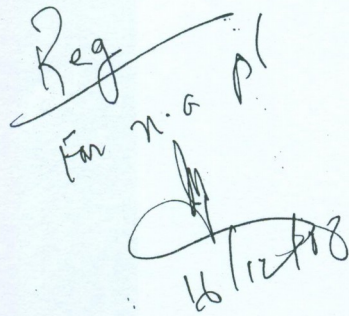 Reg
For n.a pl
16/12/08